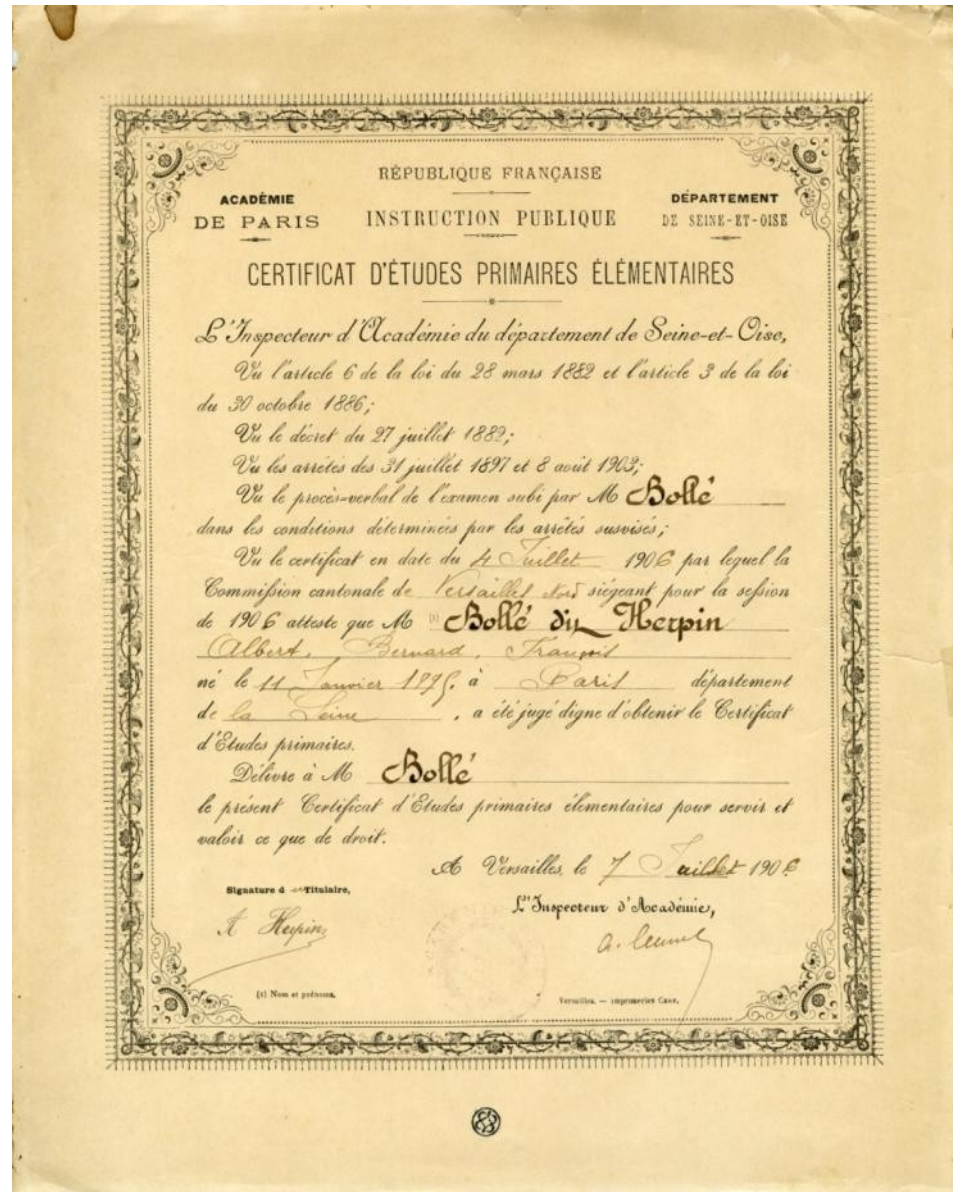 RÉPUBLIQUE FRANÇAISE
ACADÉMIE
DE PARIS
INSTRUCTION PUBLIQUE
DÉPARTEMENT
DE SEINE-ET-OISE
CERTIFICAT D'ÉTUDES PRIMAIRES ÉLÉMENTAIRES
L'Inspecteur d'Académie du département de Seine-et-Oise,
Vu l'article 6 de la loi du 28 mars 1882 et l'article 3 de la loi
du 30 octobre 1886;
Vu le décret du 27 juillet 1882;
Vu les arrêtés des 31 juillet 1897 et 8 août 1903;
Vu le procès-verbal de l'examen subi par M Bollé
dans les conditions déterminées par les arrêtés susvisés;
Vu le certificat en date du 4 Juillet 1906 par lequel la
Commission cantonale de Versailles Nord siégeant pour la session
de 1906 atteste que M (1) Bollé dit Herpin
Albert, Bernard, François
né le 11 Janvier 1895, à Paris département
de la Seine, a été jugé digne d'obtenir le Certificat
d'Etudes primaires.
Délivre à M Bollé
le présent Certificat d'Etudes primaires élémentaires pour servir et
valoir ce que de droit.
A Versailles, le 7 Juillet 1906
Signature d Titulaire,
L'Inspecteur d'Académie,
A Herpin
(1) Nom et prénoms.
Versailles. — Imprimeries Cerf.